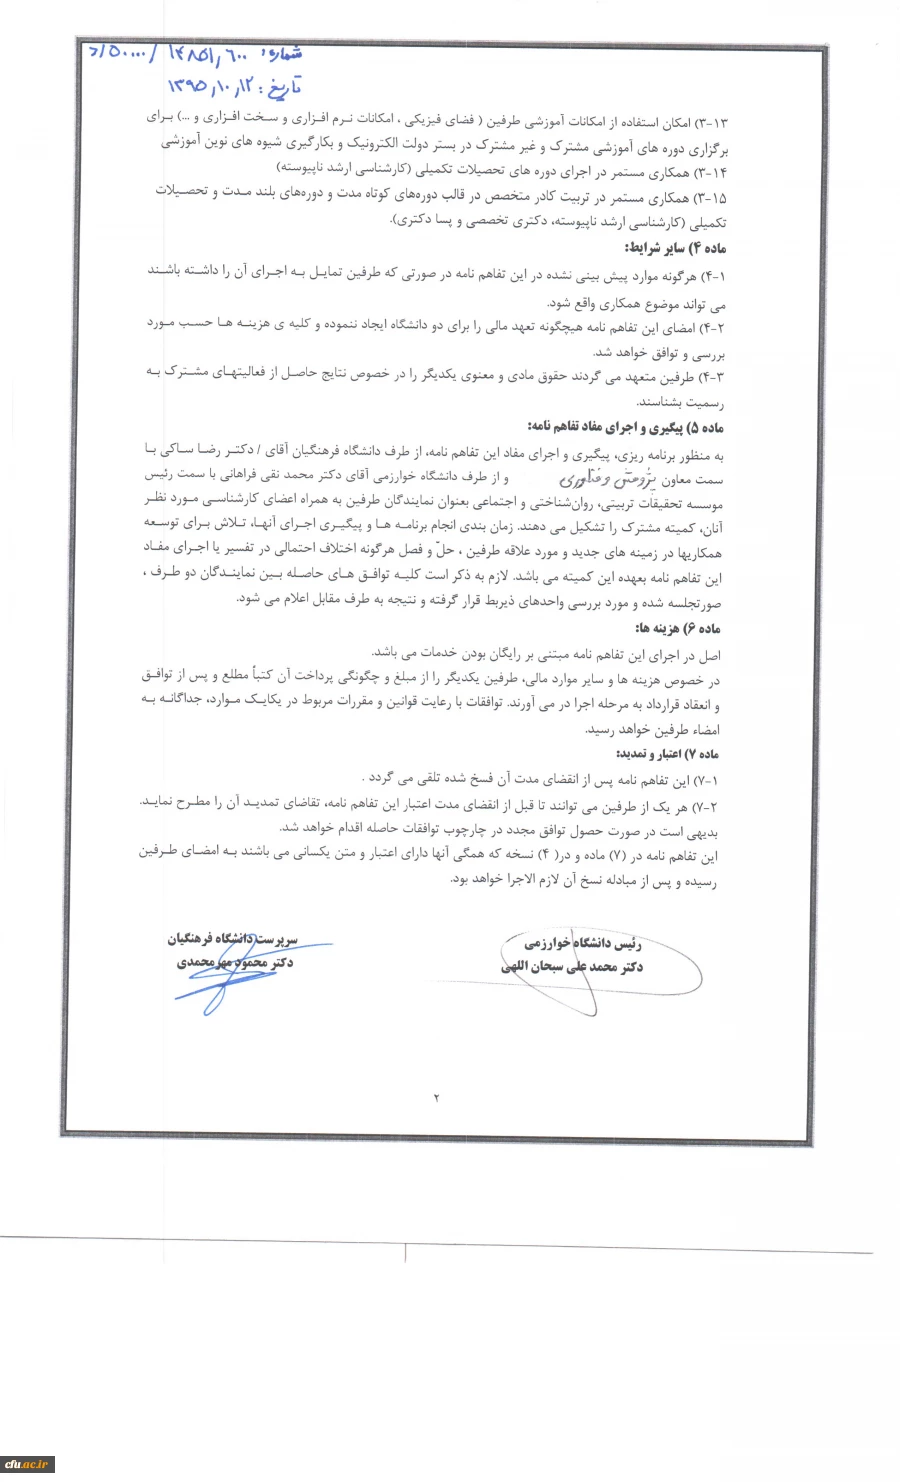 شماره: ۵۰۰۰۰/۱۴۸۵۱/۶۰۰/د
تاریخ: ۱۳۹۵/۱۰/۱۲
۳-۱۳) امکان استفاده از امکانات آموزشی طرفین ( فضای فیزیکی ، امکانات نرم افزاری و سخت افزاری و ...) برای
برگزاری دوره های آموزشی مشترک و غیر مشترک در بستر دولت الکترونیک و بکارگیری شیوه های نوین آموزشی
۳-۱۴) همکاری مستمر در اجرای دوره های تحصیلات تکمیلی (کارشناسی ارشد ناپیوسته)
۳-۱۵) همکاری مستمر در تربیت کادر متخصص در قالب دوره‌های کوتاه مدت و دوره‌های بلند مدت و تحصیلات
تکمیلی (کارشناسی ارشد ناپیوسته، دکتری تخصصی و پسا دکتری).
ماده ۴) سایر شرایط:
۴-۱) هرگونه موارد پیش بینی نشده در این تفاهم نامه در صورتی که طرفین تمایل به اجرای آن را داشته باشند
می تواند موضوع همکاری واقع شود.
۴-۲) امضای این تفاهم نامه هیچگونه تعهد مالی را برای دو دانشگاه ایجاد ننموده و کلیه ی هزینه ها حسب مورد
بررسی و توافق خواهد شد.
۴-۳) طرفین متعهد می گردند حقوق مادی و معنوی یکدیگر را در خصوص نتایج حاصل از فعالیتهای مشترک به
رسمیت بشناسند.
ماده ۵) پیگیری و اجرای مفاد تفاهم نامه:
به منظور برنامه ریزی، پیگیری و اجرای مفاد این تفاهم نامه، از طرف دانشگاه فرهنگیان آقای / دکتر رضا ساکی با
سمت معاون پژوهش و فناوری و از طرف دانشگاه خوارزمی آقای دکتر محمد نقی فراهانی با سمت رئیس
موسسه تحقیقات تربیتی، روان‌شناختی و اجتماعی بعنوان نمایندگان طرفین به همراه اعضای کارشناسی مورد نظر
آنان، کمیته مشترک را تشکیل می دهند. زمان بندی انجام برنامه ها و پیگیری اجرای آنها، تلاش برای توسعه
همکاریها در زمینه های جدید و مورد علاقه طرفین ، حلّ و فصل هرگونه اختلاف احتمالی در تفسیر یا اجرای مفاد
این تفاهم نامه بعهده این کمیته می باشد. لازم به ذکر است کلیه توافق های حاصله بین نمایندگان دو طرف ،
صورتجلسه شده و مورد بررسی واحدهای ذیربط قرار گرفته و نتیجه به طرف مقابل اعلام می شود.
ماده ۶) هزینه ها:
اصل در اجرای این تفاهم نامه مبتنی بر رایگان بودن خدمات می باشد.
در خصوص هزینه ها و سایر موارد مالی، طرفین یکدیگر را از مبلغ و چگونگی پرداخت آن کتباً مطلع و پس از توافق
و انعقاد قرارداد به مرحله اجرا در می آورند. توافقات با رعایت قوانین و مقررات مربوط در یکایک موارد، جداگانه به
امضاء طرفین خواهد رسید.
ماده ۷) اعتبار و تمدید:
۷-۱) این تفاهم نامه پس از انقضای مدت آن فسخ شده تلقی می گردد .
۷-۲) هر یک از طرفین می توانند تا قبل از انقضای مدت اعتبار این تفاهم نامه، تقاضای تمدید آن را مطرح نماید.
بدیهی است در صورت حصول توافق مجدد در چارچوب توافقات حاصله اقدام خواهد شد.
این تفاهم نامه در (۷) ماده و در( ۴) نسخه که همگی آنها دارای اعتبار و متن یکسانی می باشند به امضای طرفین
رسیده و پس از مبادله نسخ آن لازم الاجرا خواهد بود.
رئیس دانشگاه خوارزمی
دکتر محمد علی سبحان اللهی
سرپرست دانشگاه فرهنگیان
دکتر محمود مهرمحمدی
۲
cfu.ac.ir